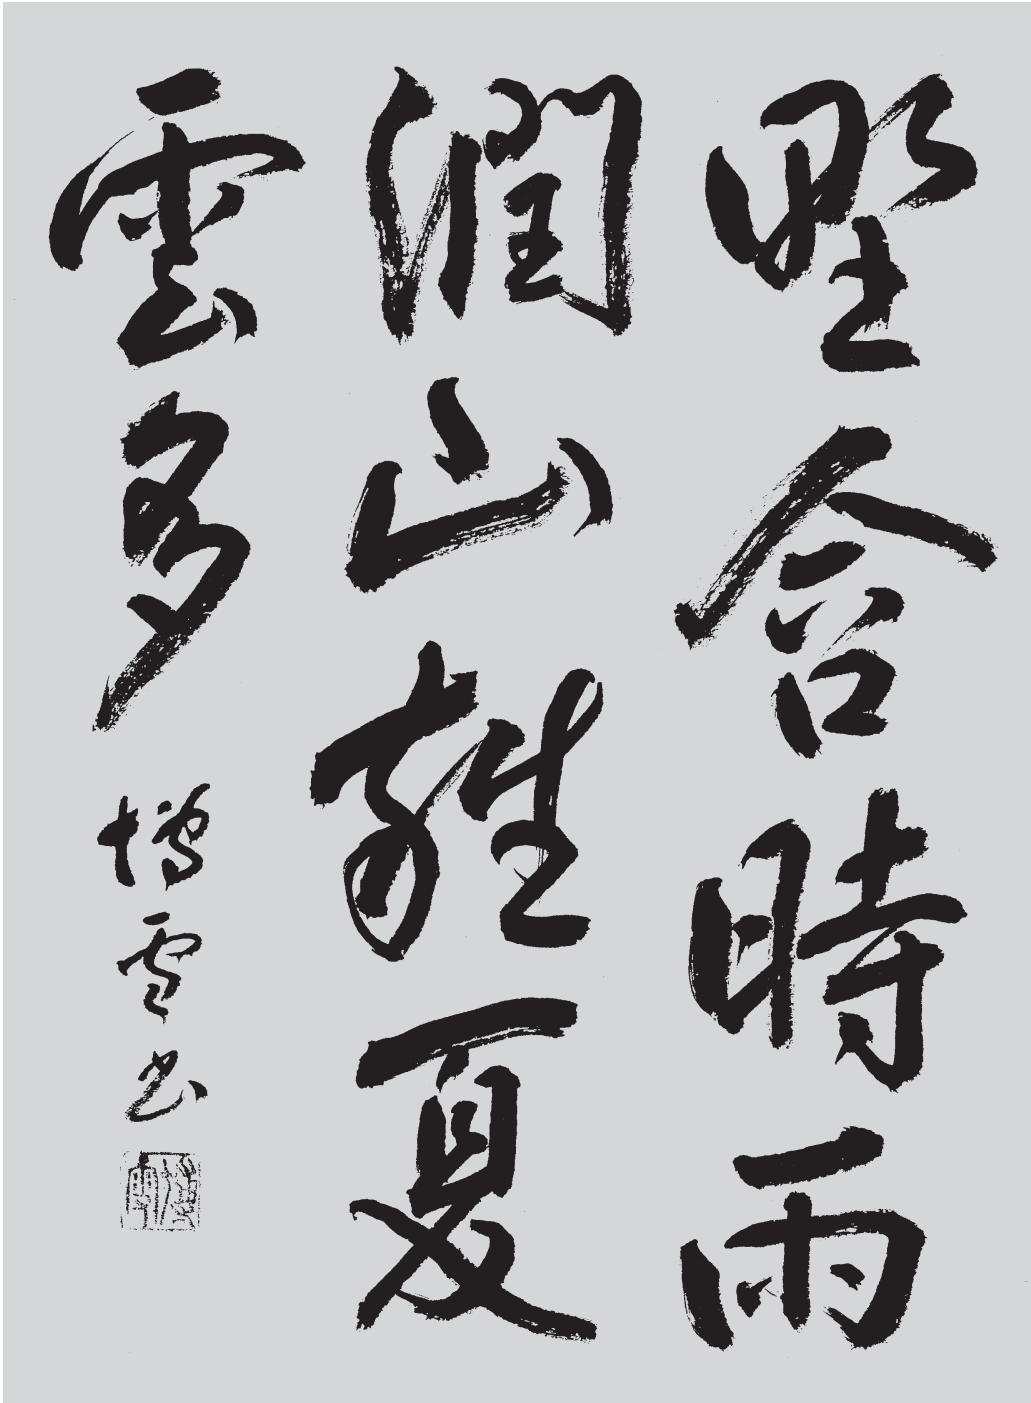 野含時雨
潤山雜夏
雲多
博雪書